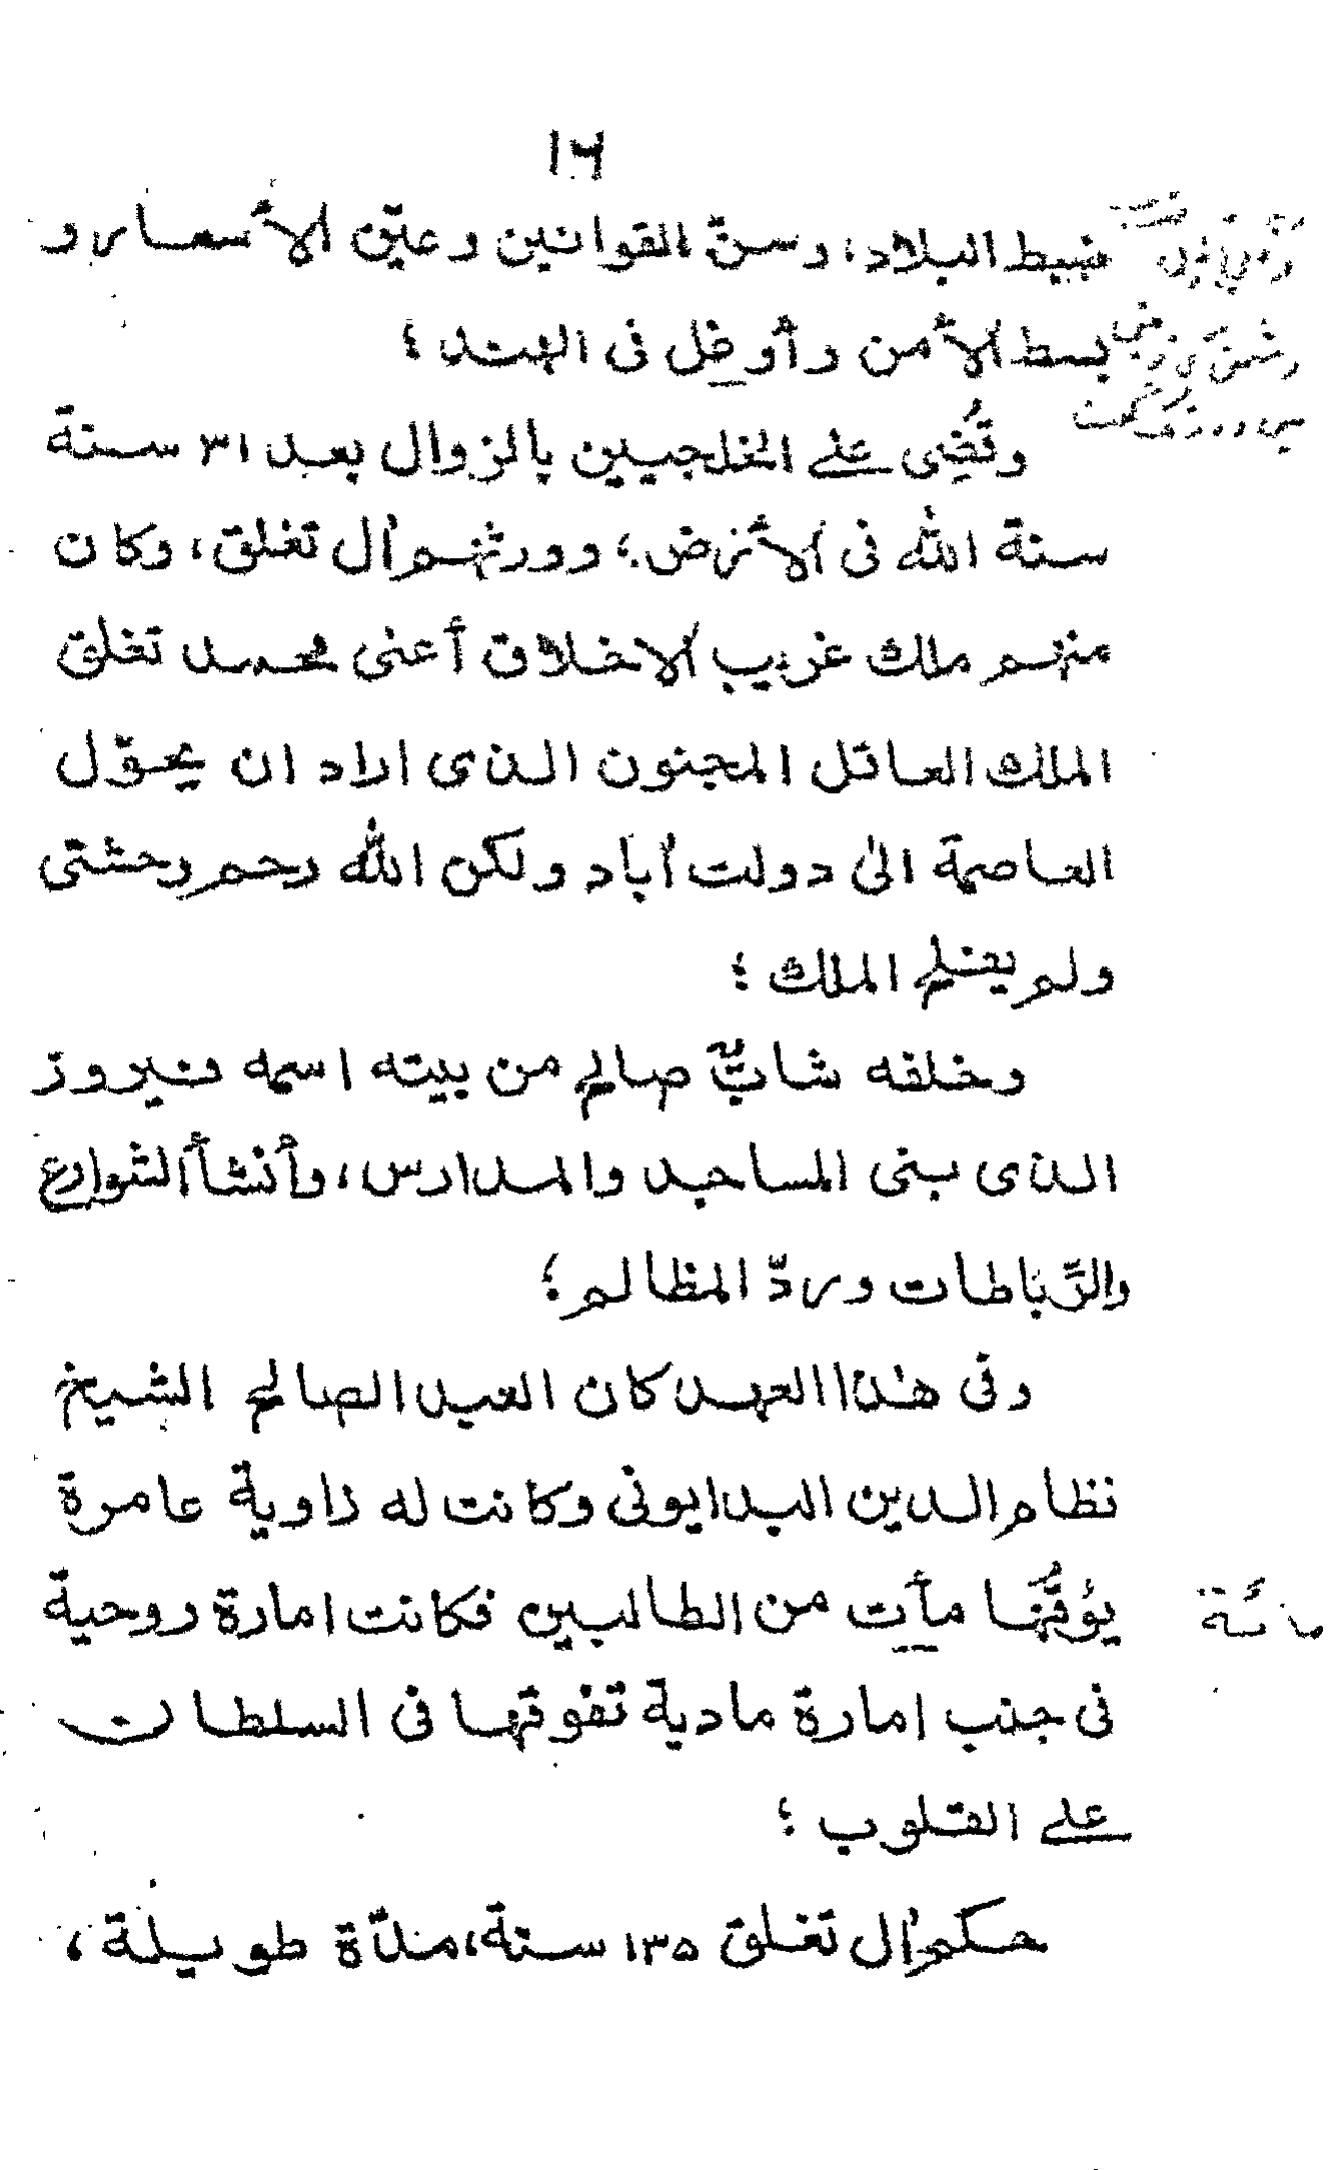 ١٦
ضبط البلاد، وسنّ القوانين وعيّن الأسعار و
بسط الأمن وأوغل فى الهند ؛
وقُضِى على الخلجيين بالزوال بعد ٣١ سنة
سنة الله فى الأرض ؛ وورثهم اٰل تغلق، وكان
منهم ملك غريب الاخلاق أعنى محمد تغلق
الملك العاقل المجنون الذى اراد ان يحوّل
العاصمة الىٰ دولت اٰباد ولكن الله رحم رحشتى
ولم يفلح الملك ؛
وخلفه شابٌّ صالح من بيته اسمه فيروز
الذى بنى المساجد والمدارس، وأنشأ الشوارع
والرِّباطات وردّ المظالم ؛
وفى هٰذا العهد كان العبد الصالح الشيخ
نظام الدين البدايونى وكانت له زاوية عامرة
يؤمُّها مآت من الطالبين فكانت امارة روحية
مائة
فى جنب امارة مادية تفوقها فى السلطان
على القلوب ؛
حكم اٰل تغلق ١٣٥ سنة، مدّة طويلة،